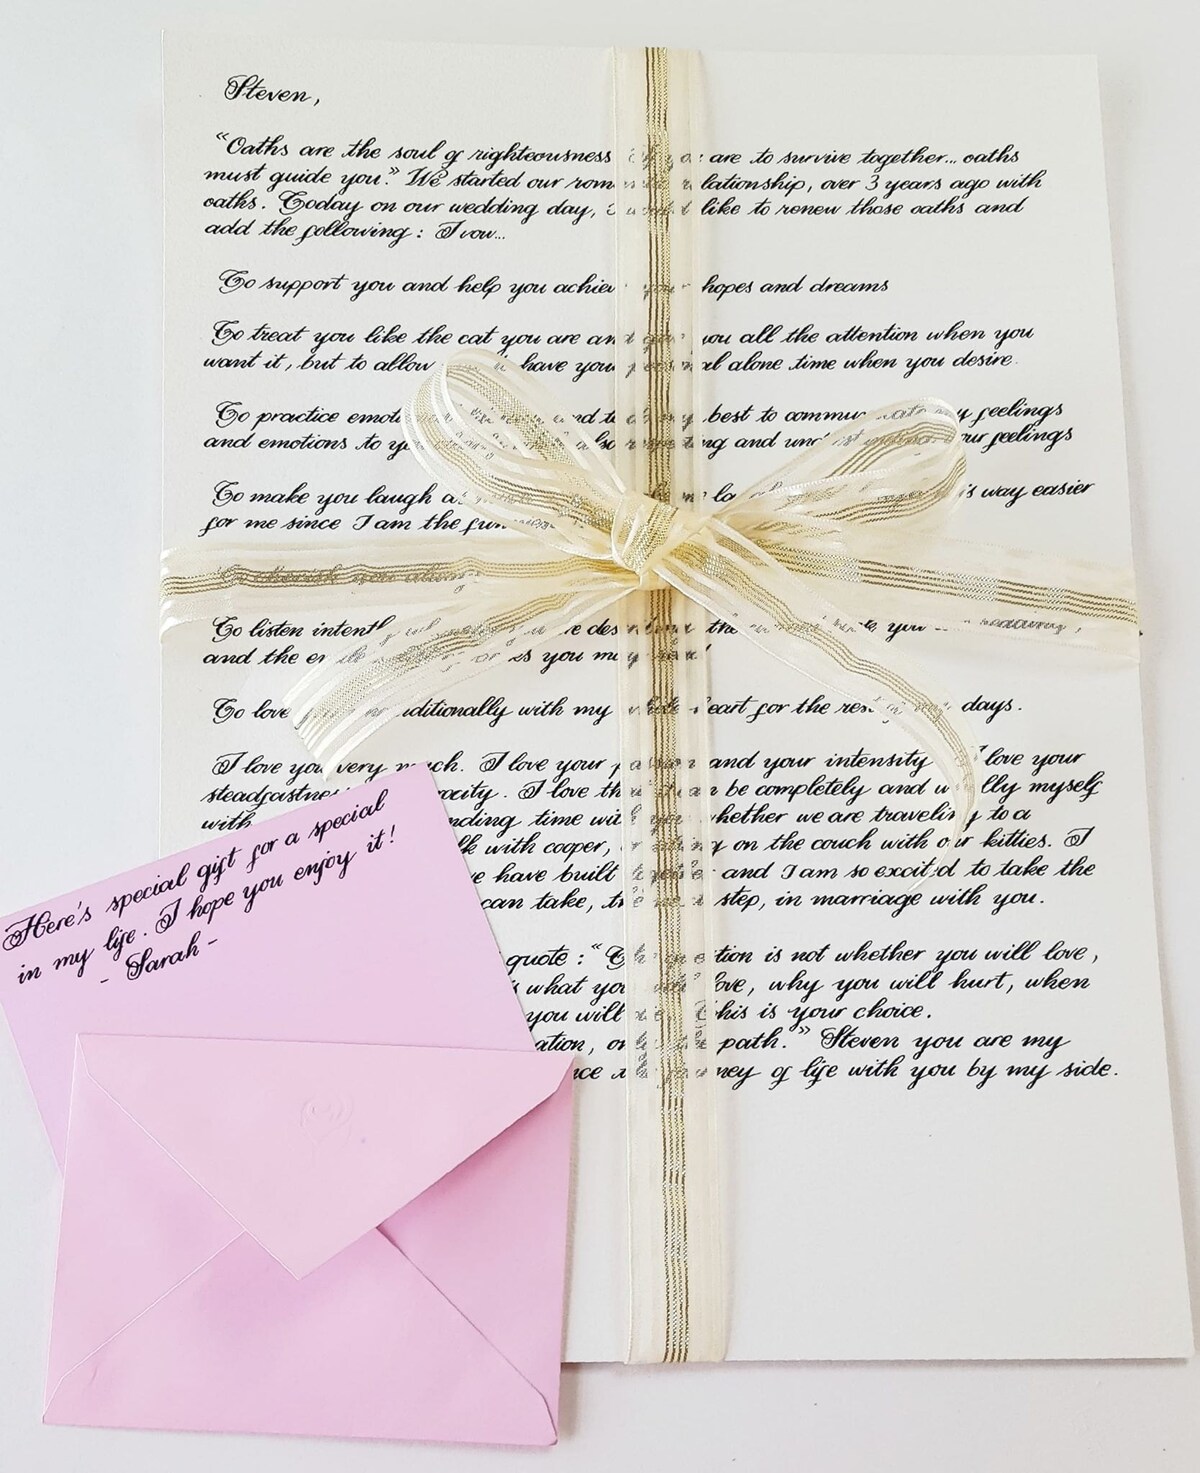 Steven,
"Oaths are the soul of righteousness you are to survive together... oaths
must guide you." We started our relationship, over 3 years ago with
oaths. Today on our wedding day, I would like to renew those oaths and
add the following: I vow...
To support you and help you achieve your hopes and dreams
To treat you like the cat you are and give you all the attention when you
want it, but to allow have your personal alone time when you desire.
To practice and to do my best to communicate my feelings
and emotions to you also respecting and understanding your feelings
To make you laugh is way easier
for me since I am the
To cherish you always
To listen you
and the you may
To love unconditionally with my whole heart for the rest days.
I love you very much. I love your passion and your intensity I love your
I love that I can be completely and myself
with time with you whether we are traveling to a
with cooper, or sitting on the couch with our kitties. I
we have built together and I am so excited to take the
can take, the next step, in marriage with you.
quote: "The question is not whether you will love,
what you will love, why you will hurt, when
you will This is your choice.
the path." Steven you are my
journey of life with you by my side.
Here's special gift for a special
in my life. I hope you enjoy it!
- Sarah -